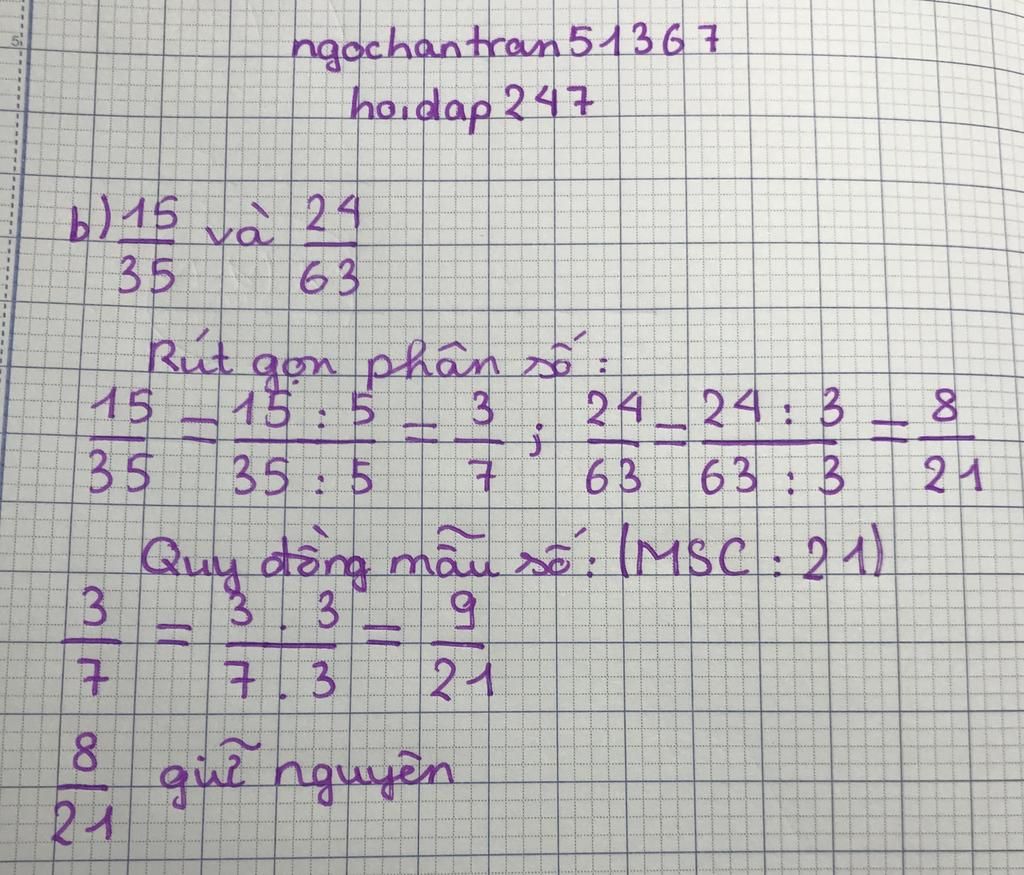 ngochantran51367
hoidap247
b) 15/35 và 24/63
Rút gọn phân số:
15/35 = 15 : 5/35 : 5 = 3/7 ; 24/63 = 24 : 3/63 : 3 = 8/21
Quy đồng mẫu số: (MSC : 21)
3/7 = 3 . 3/7 . 3 = 9/21
8/21 giữ nguyên